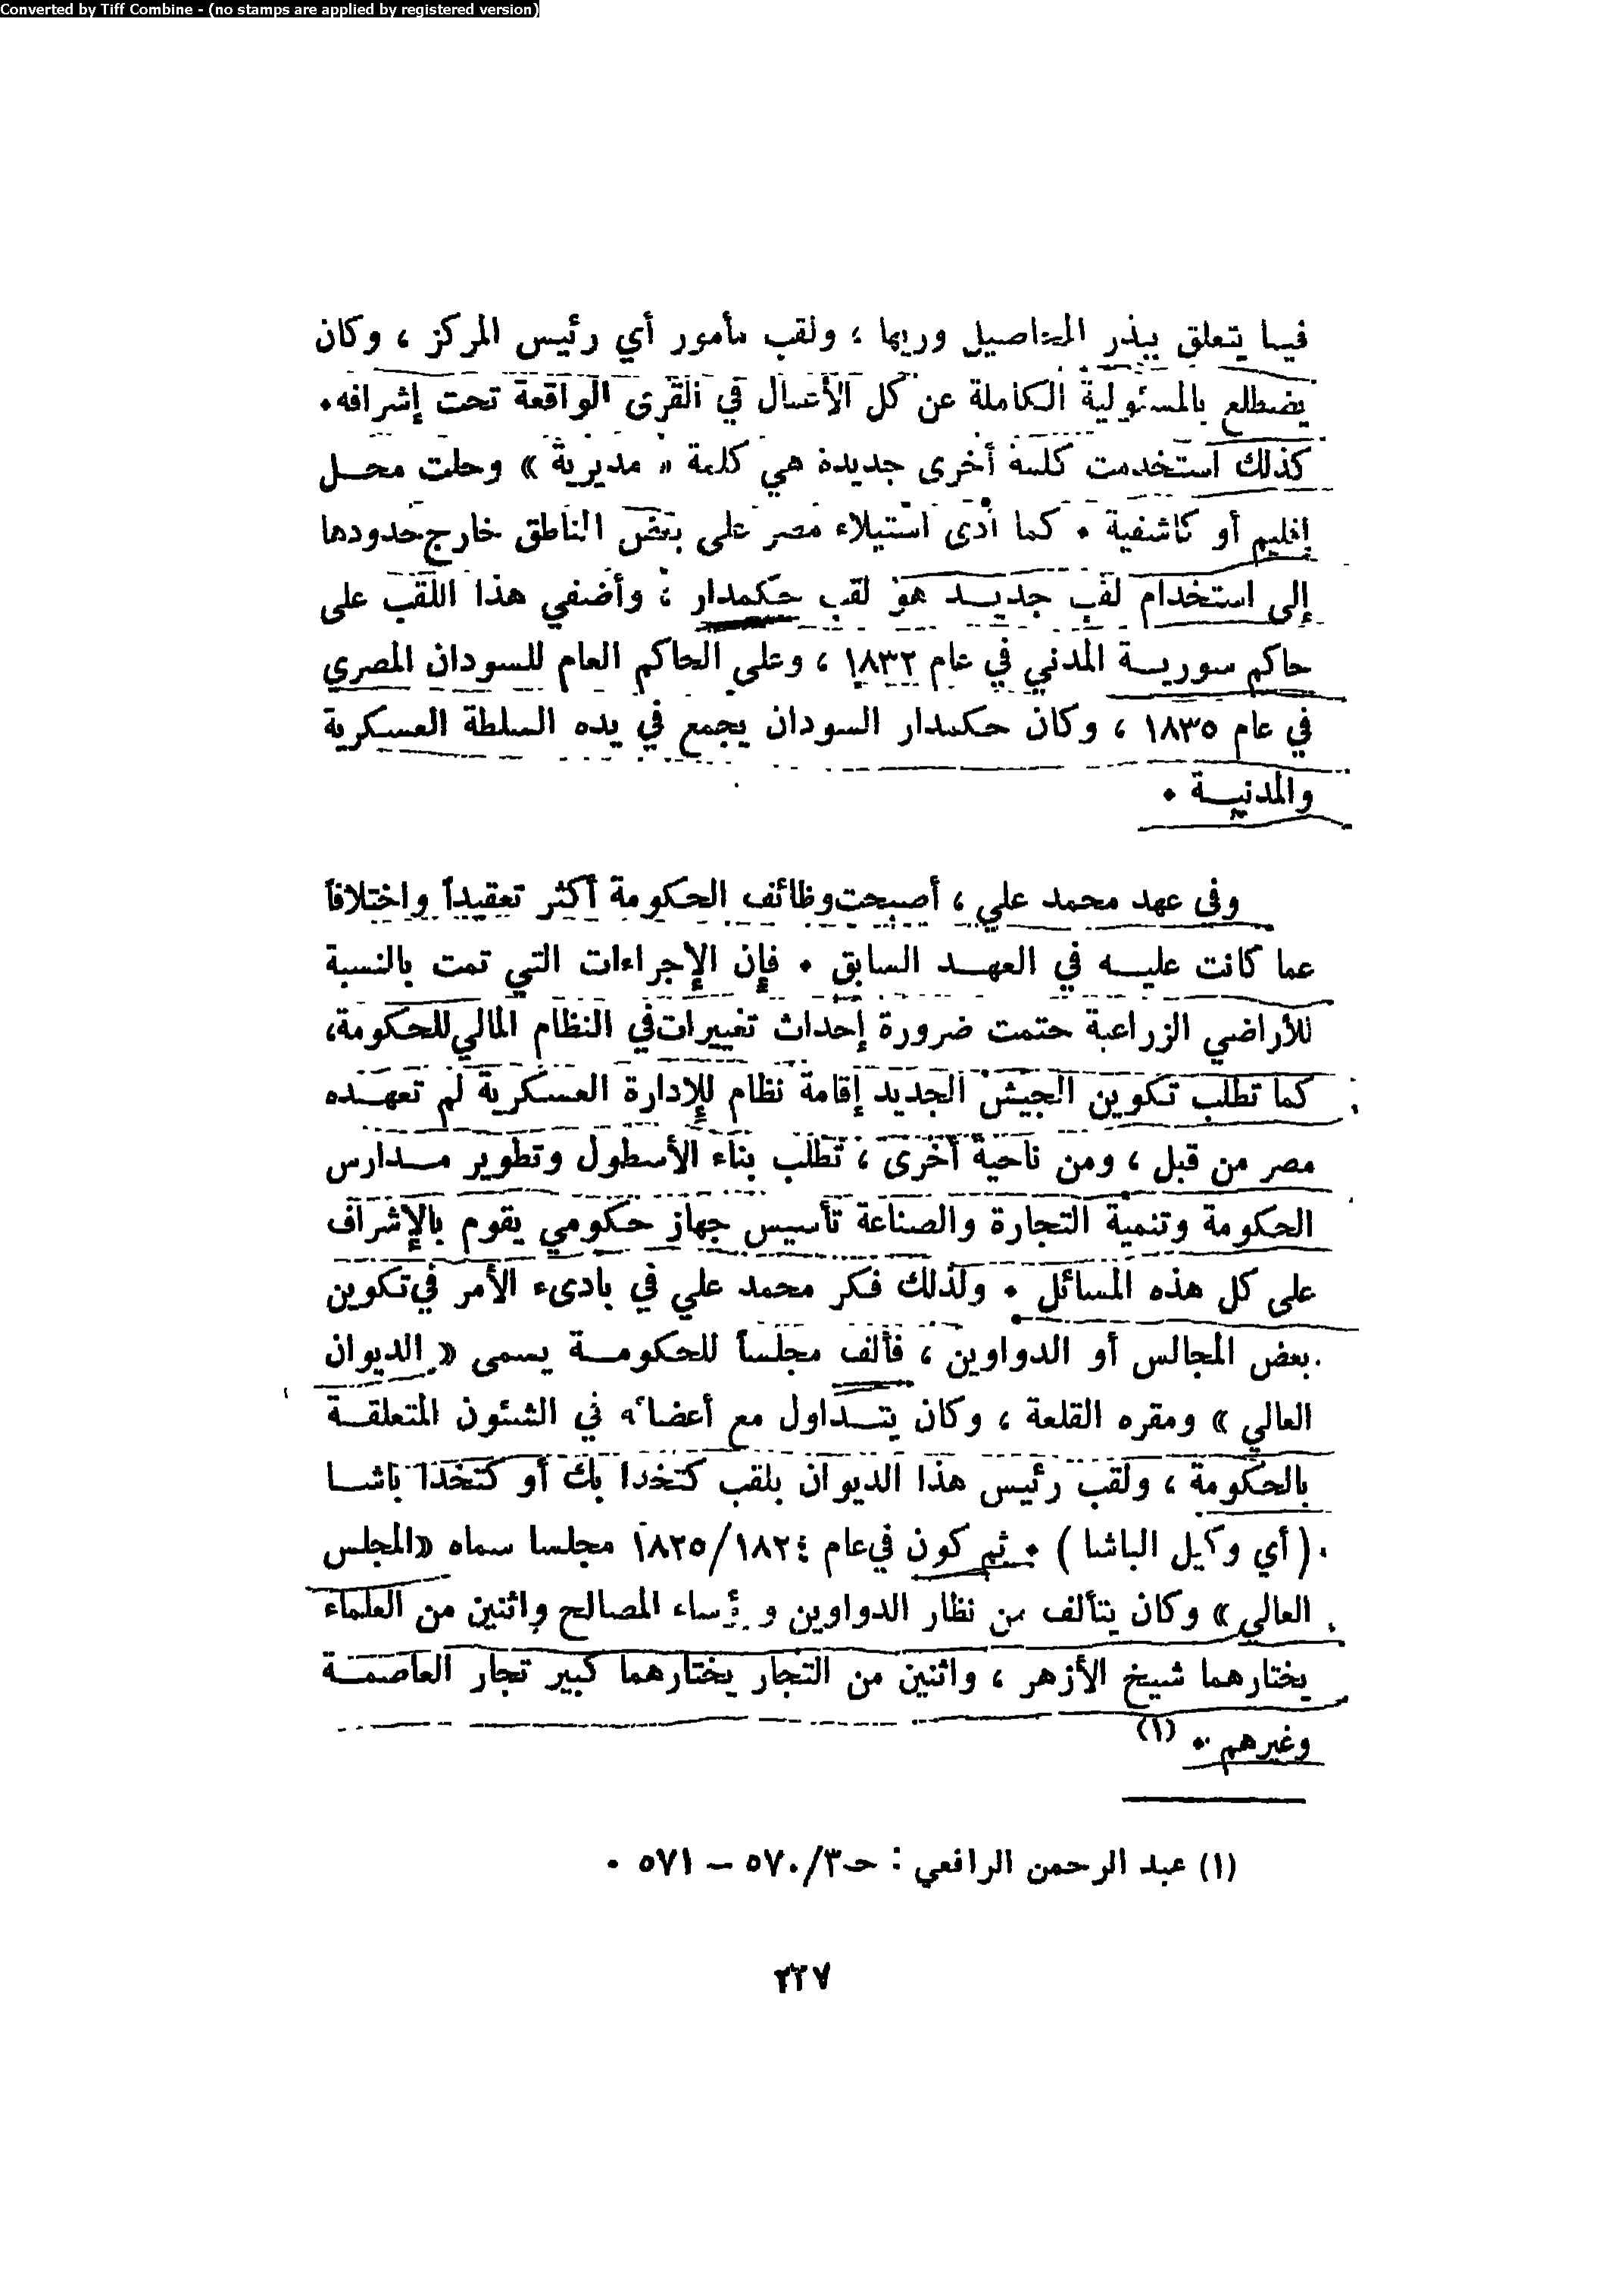 Converted by Tiff Combine - (no stamps are applied by registered version)
فيما يتعلق ببذر المحاصيل وريها ، ولقب مأمور أي رئيس المركز ، وكان
يضطلع بالمسئولية الكاملة عن كل الأعمال في القرى الواقعة تحت إشرافه .
كذلك استخدمت كلمة أخرى جديدة هي كلمة « مديرية » وحلت محـل
إقليم أو كاشفية . كما أدى استيلاء مصر على بعض المناطق خارج حدودها
إلى استخدام لقب جديـد هو لقب حكمدار ، وأضفي هذا اللقب على
حاكم سوريـة المدني في عام ١٨٣٢ ، وعلى الحاكم العام للسودان المصري
في عام ١٨٣٥ ، وكان حكمدار السودان يجمع في يده السلطة العسكرية
والمدنيـة .
وفي عهد محمد علي ، أصبحت وظائف الحكومة أكثر تعقيداً واختلافاً
عما كانت عليـه في العهـد السابق . فإن الإجراءات التي تمت بالنسبة
للأراضي الزراعية حتمت ضرورة إحداث تغييرات في النظام المالي للحكومة،
كما تطلب تكوين الجيش الجديد إقامة نظام للإدارة العسكرية لم تعهـده
مصر من قبل ، ومن ناحية أخرى ، تطلب بناء الأسطول وتطوير مـدارس
الحكومة وتنمية التجارة والصناعة تأسيس جهاز حكومي يقوم بالإشراف
على كل هذه المسائل . ولذلك فكر محمد علي في بادىء الأمر في تكوين
بعض المجالس أو الدواوين ، فألف مجلساً للحكومـة يسمى « الديوان
العالي » ومقره القلعة ، وكان يتـداول مع أعضائه في الشئون المتعلقـة
بالحكومة ، ولقب رئيس هذا الديوان بلقب كتخدا بك أو كتخدا باشـا
( أي وكيل الباشا ) . ثم كون في عام ١٨٢٤/١٨٢٥ مجلسا سماه «المجلس
العالي » وكان يتألف من نظار الدواوين ورؤساء المصالح واثنين من العلماء
يختارهما شيخ الأزهر ، واثنين من التجار يختارهما كبير تجار العاصمـة
وغيرهم . (١)
(١) عبد الرحمن الرافعي : حـ٣/٥٧٠ – ٥٧١ .
٢٢٧